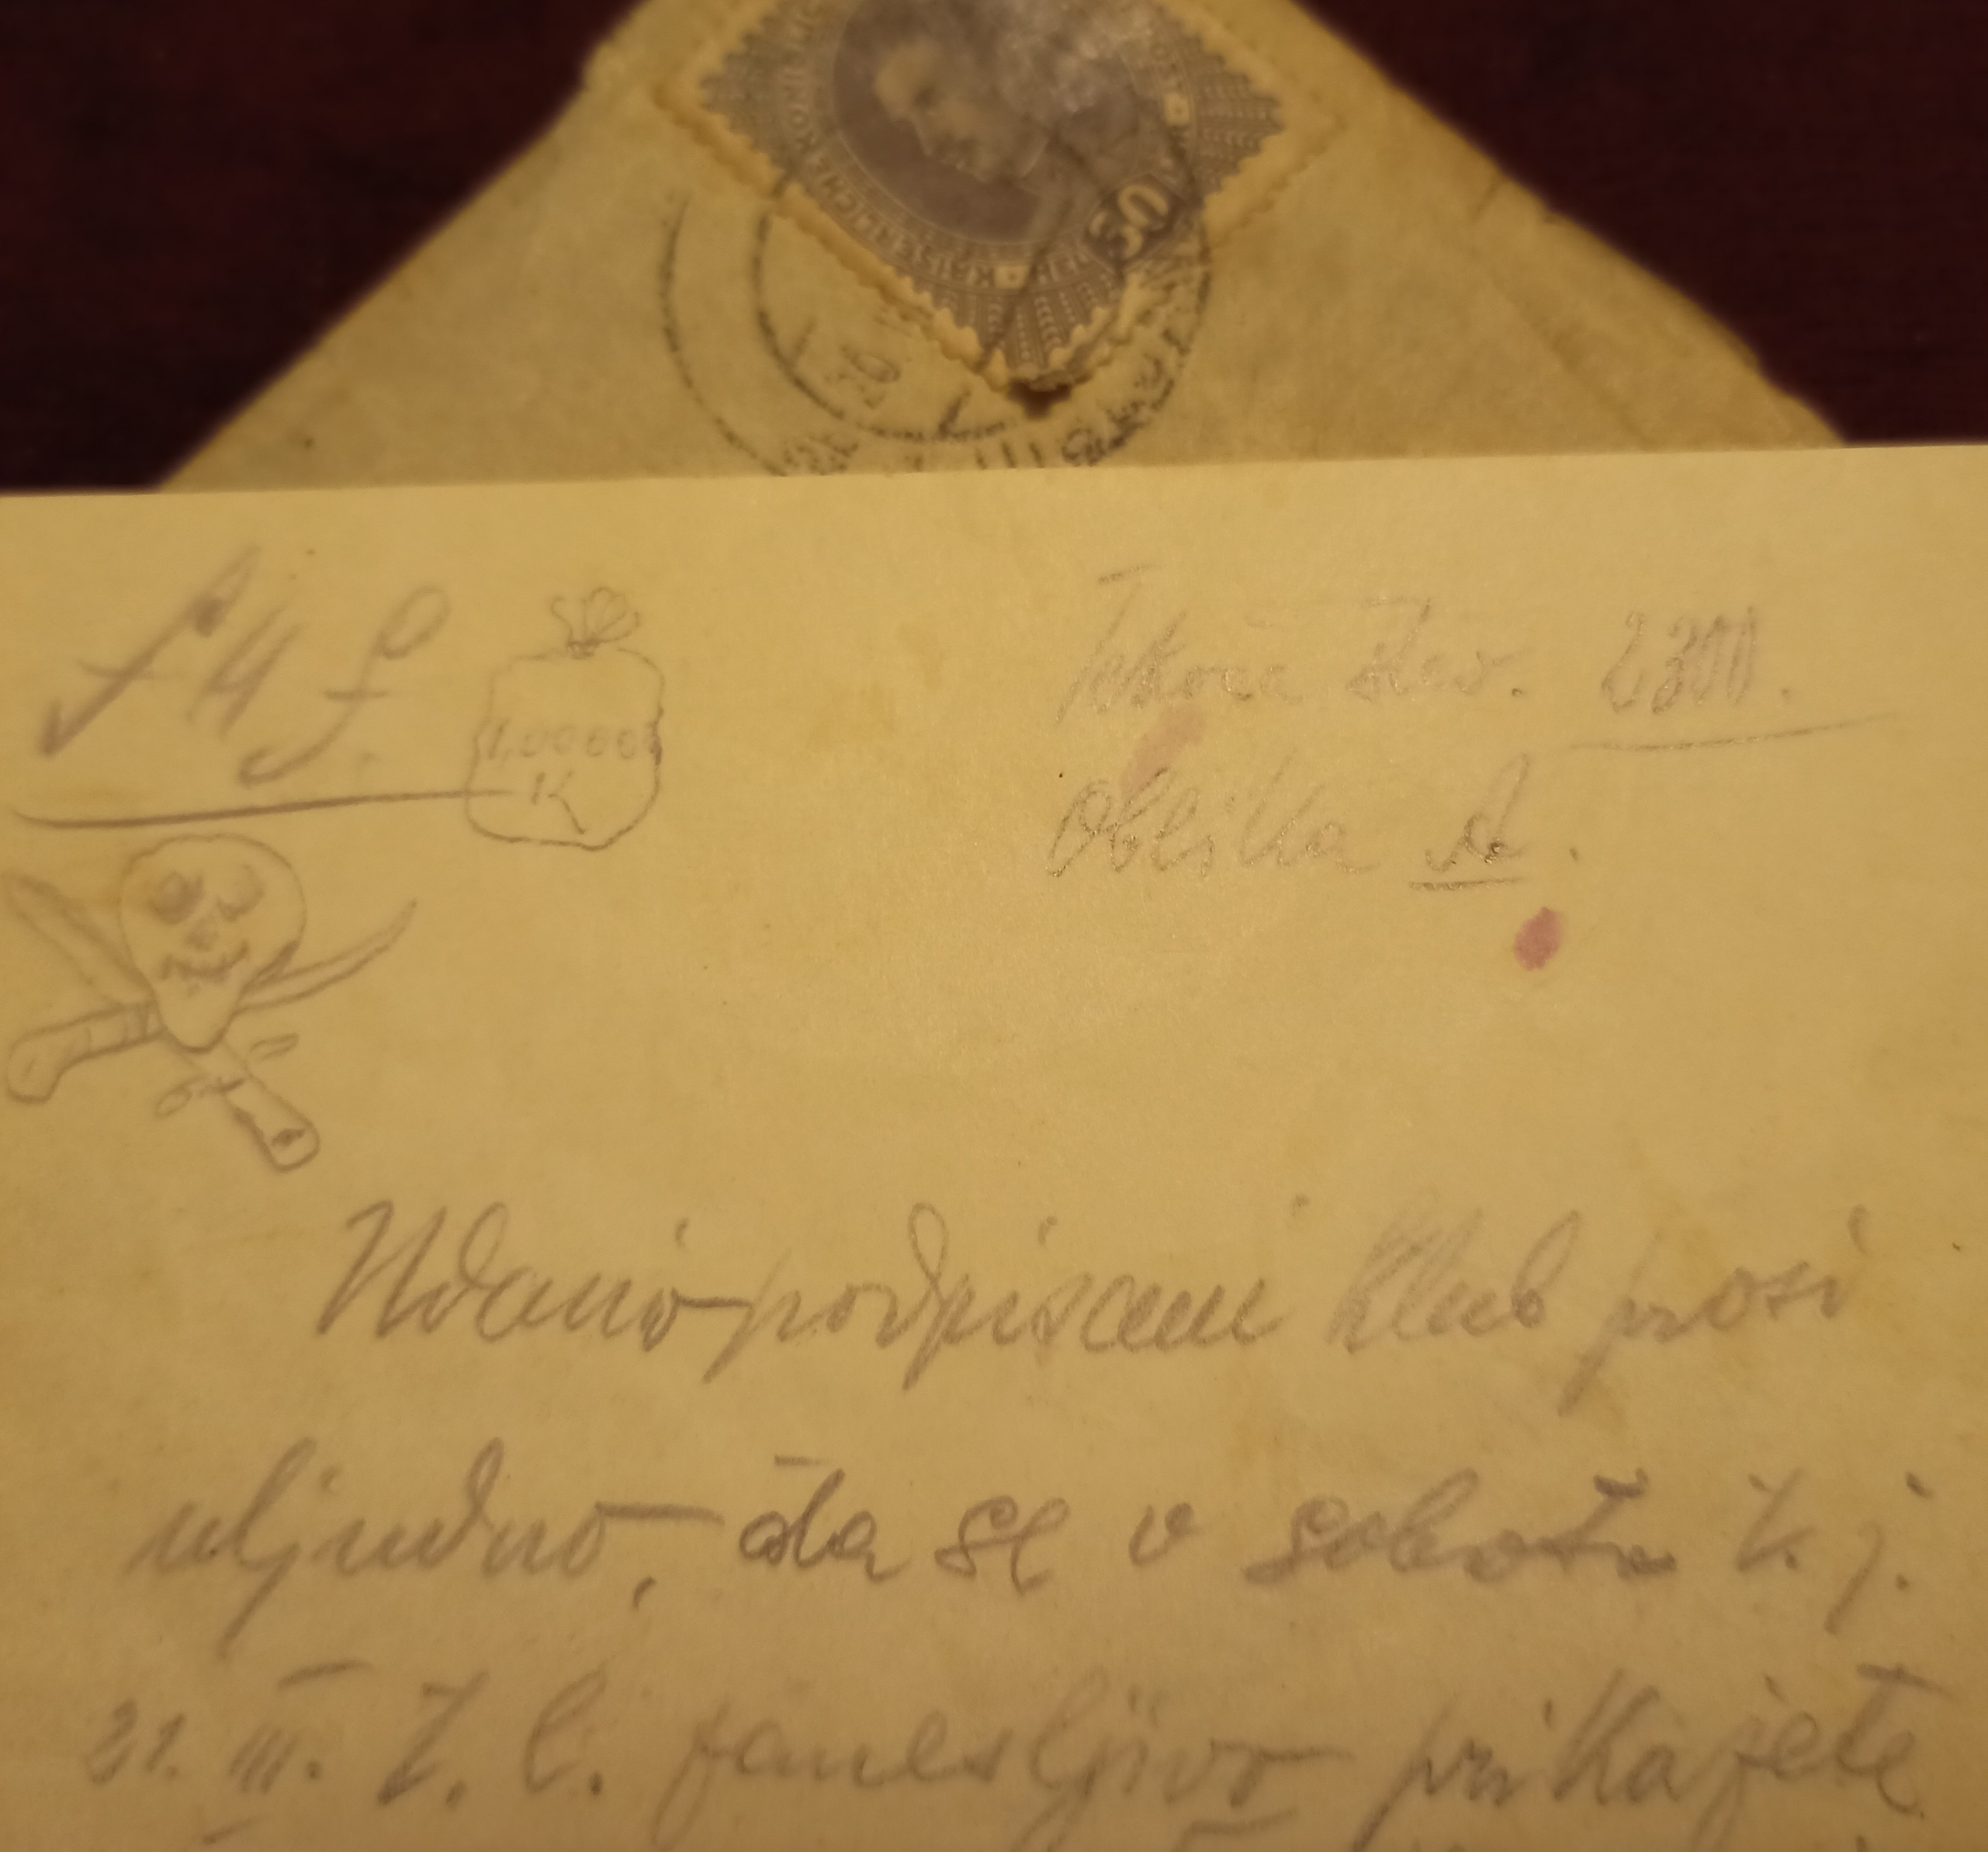 DER KAISERLICHE KÖN
30
20
1,00000
K
Tekoča štev. 2300.
Oblika A.
Udano podpisani klub prosi
uljudno, da se v soboto t. j.
21. III. t. l. zanesljivo prikažete